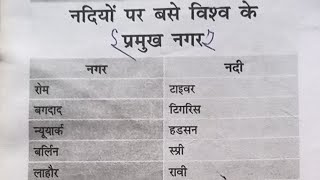 नदियों पर बसे विश्व के
प्रमुख नगर
नगर नदी
रोम टाइवर
बगदाद टिगरिस
न्यूयार्क हडसन
बर्लिन स्प्री
लाहौर रावी